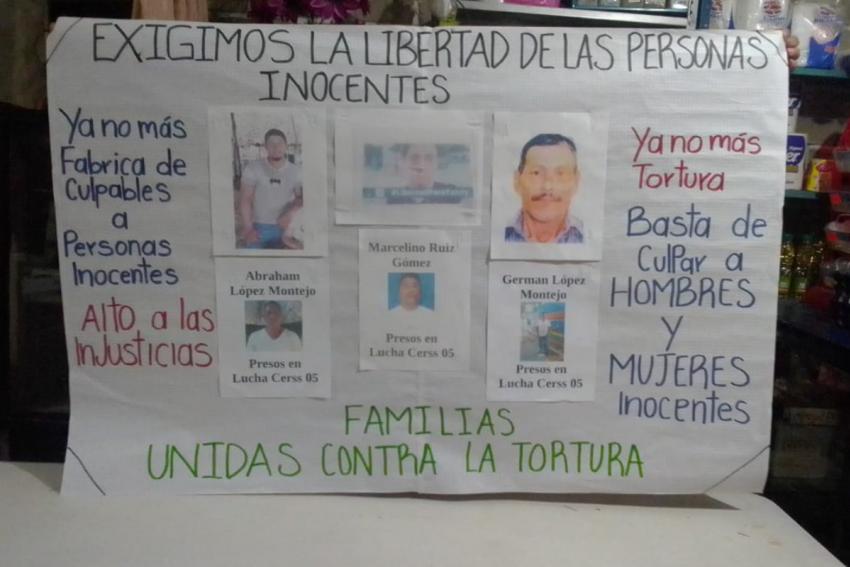 EXIGIMOS LA LIBERTAD DE LAS PERSONAS
INOCENTES
Ya no más
Fabrica de
Culpables
a
Personas
Inocentes
Alto a las
InJusticias
Abraham
López Montejo
Presos en
Lucha Cerss 05
Marcelino Ruiz
Gómez
Presos en
Lucha Cerss 05
German López
Montejo
Presos en
Lucha Cerss 05
Ya no más
Tortura
Basta de
CulPar a
HOMBRES
Y
MUJERES
Inocentes
FAMILIAS
UNIDAS CONTRA LA TORTURA